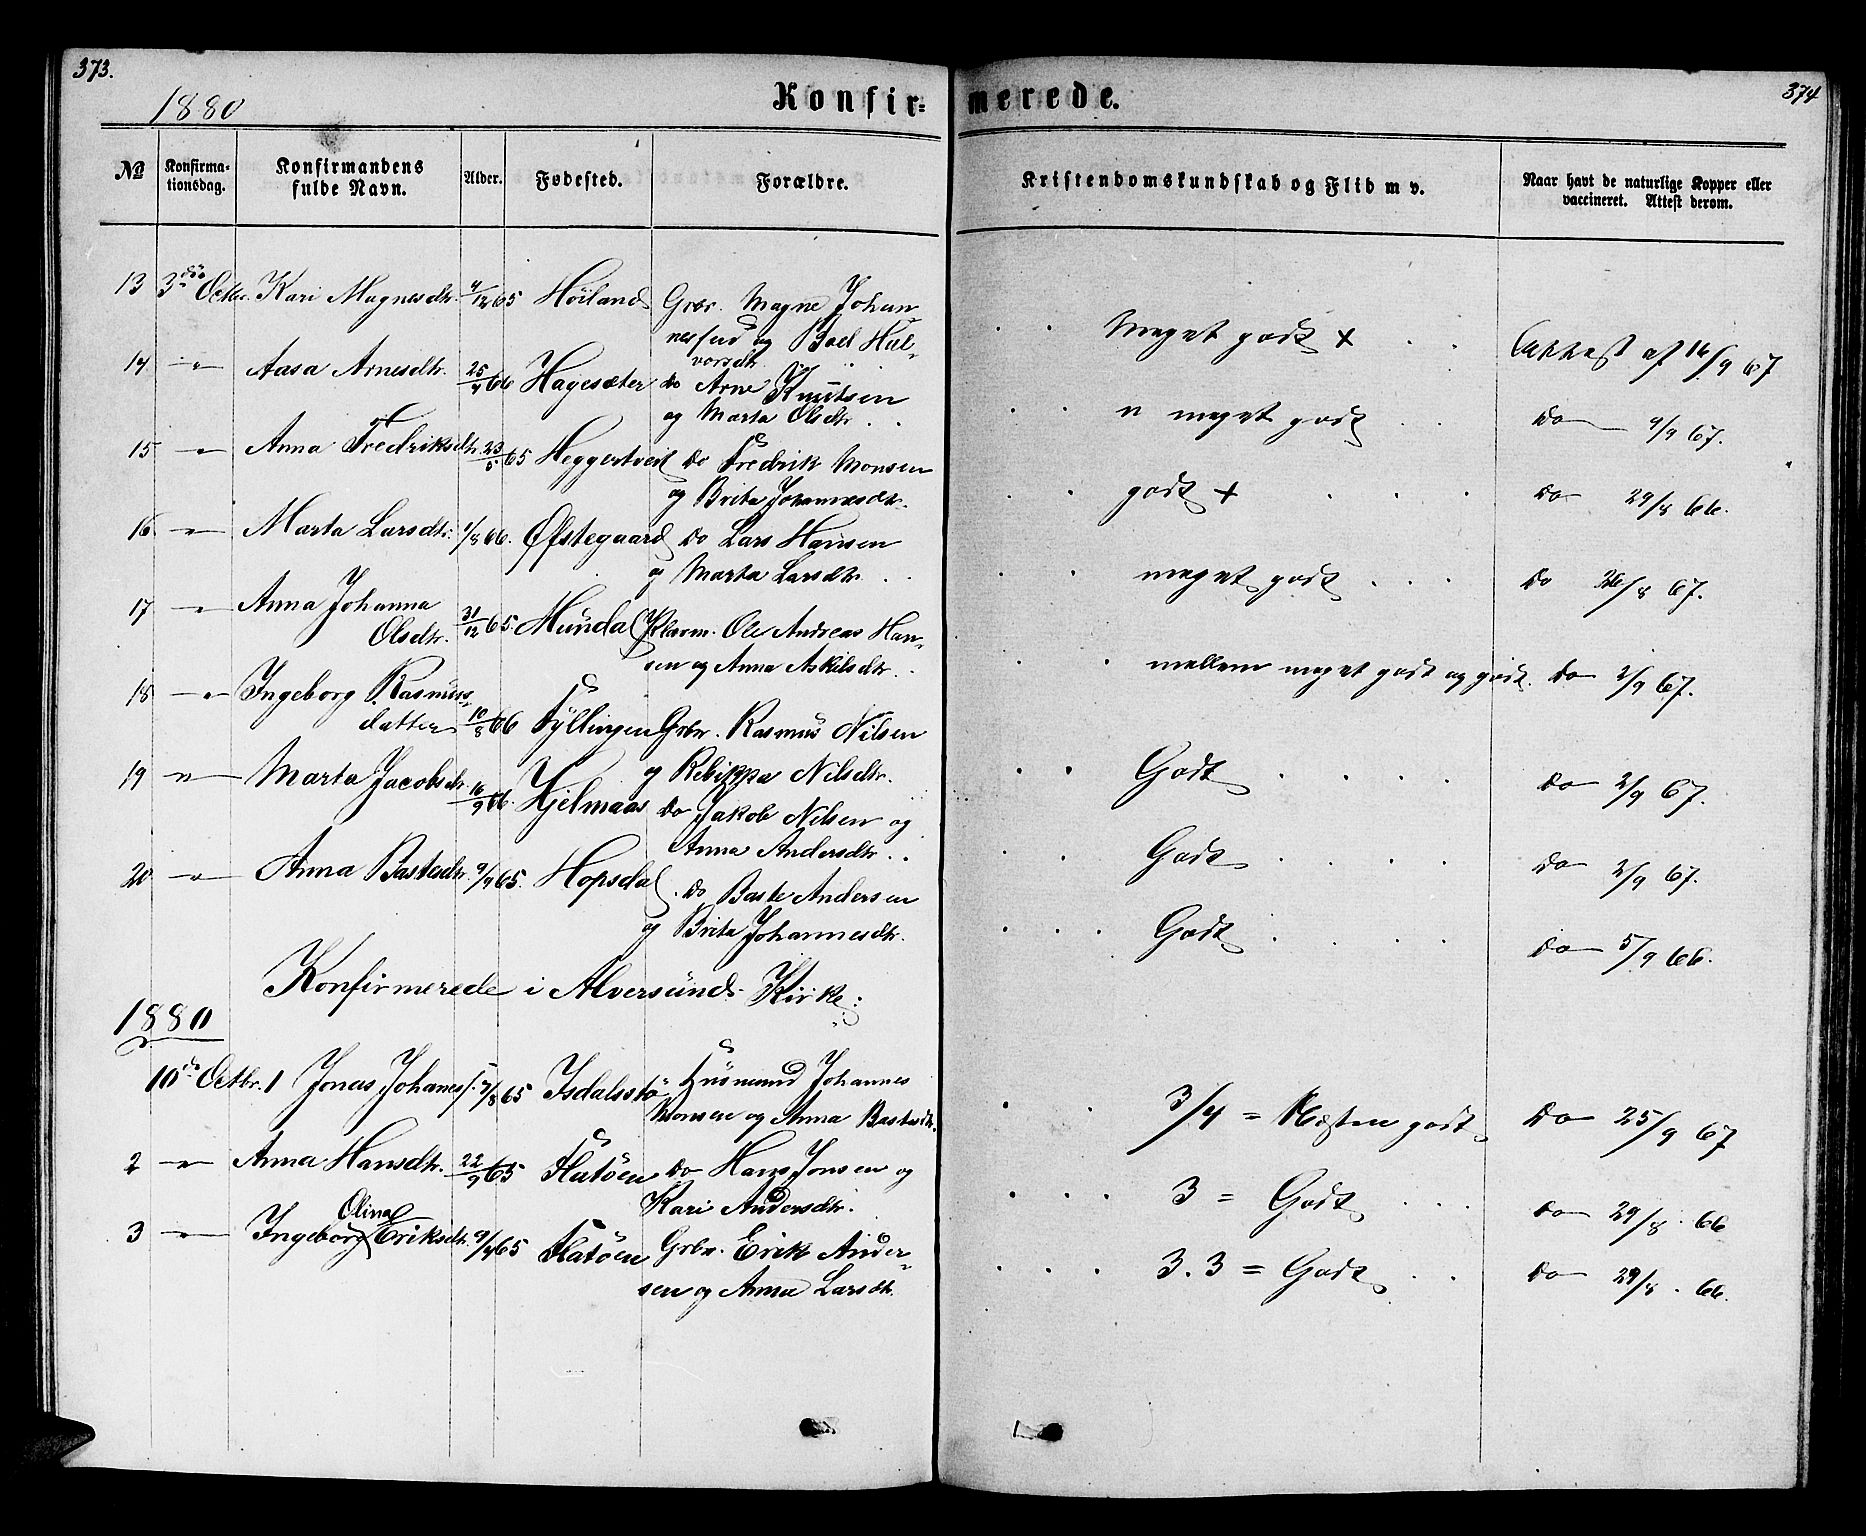 373.
1880
Konfir-
№
Konfirma-
tionsdag.
Konfirmandens
fulde Navn.
Alder.
Fødested.
Forældre.
13 3die Octbr. Kari Magnesdtr. 4/12 65 Höiland Grbr. Magne Johan-
nessen og Boel Hal-
vorsdtr.
14 -"- Aasa Arnesdtr. 25/4 66 Hagesæter do Arne Knutsen
og Marta Olsdtr.
15 -"- Anna Fredriksdtr. 23/5 65 Heggertveit do Fredrik Monsen
og Brita Johannesdtr.
16 -"- Marta Larsdtr. 1/8 66. Øfstegaard do Lars Hansen
og Marta Larsdtr.
17 -"- Anna Johanna
Olsdtr. 31/12 65. Mundal Ole Andreas Han-
sen og Anna Askilsdtr.
18 -"- Ingeborg Rasmus-
datter 10/8 66 Fyllingen Grbr. Rasmus Nilsen
og Rebikka Nilsdtr.
19 -"- Marta Jacobsdtr. 16/9 66. Hjelmaas do Jakob Nilsen og
Anna Andersdtr.
20 -"- Anna Bastadtr. 9/9 65. Hopsdal do Baste Andersen
og Brita Johannesdtr.
Konfirmerede i Alversund Kirke:
1880
10de Octbr. 1 Jonas Johanes. 7/8 65 Isdalsstö Husmand Johannes
Monsen og Anna Bastadtr.
2 -"- Anna Hansdtr. 22/9 65 Flatöen do Hans Jonsen og
Kari Andersdtr.
Olina
3 -"- Ingeborg Eriksdtr. 9/4 65 Flatöen Grbr. Erik Ander-
sen og Anna Larsdtr.
merede.
374
Kristendomskundskab og Flid m v.
Naar havt de naturlige Kopper eller
vaccineret. Attest derom.
Meget godt + Attest af 16/9 67
" meget godt do 9/9 67.
godt + do 29/8 66.
meget godt do 26/8 67.
mellem meget godt og godt. do 2/9 67.
Godt do 2/9 67.
Godt do 2/9 67.
Godt do 5/9 66.
3/4 = Næsten godt do 25/9 67
3 = Godt do 29/8 66
3.3 = Godt do 29/8 66.